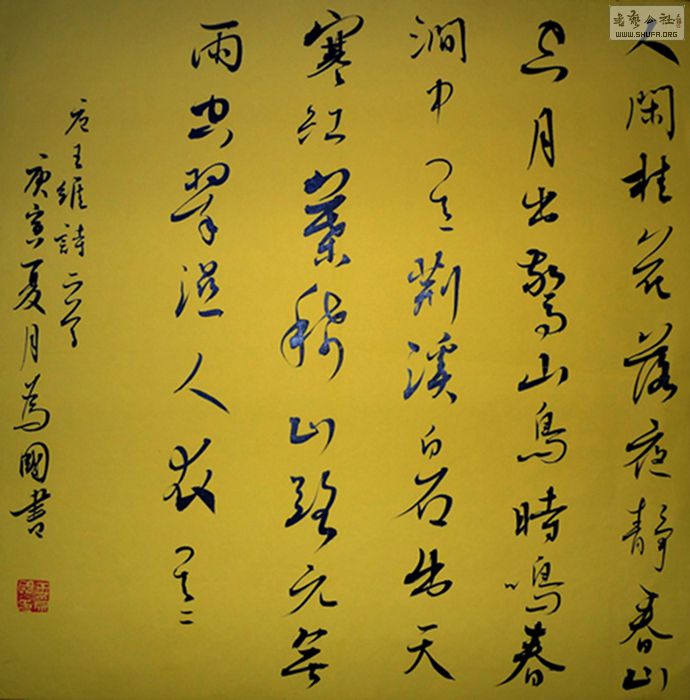 人閑桂花落夜靜春山
空月出驚山鳥時鳴春
澗中 其一 荊溪白石出天
寒紅葉稀山路元無
雨空翠濕人衣 其二
唐王維詩二首
庚寅夏月為國書
書藝公社
WWW.SHUFA.ORG